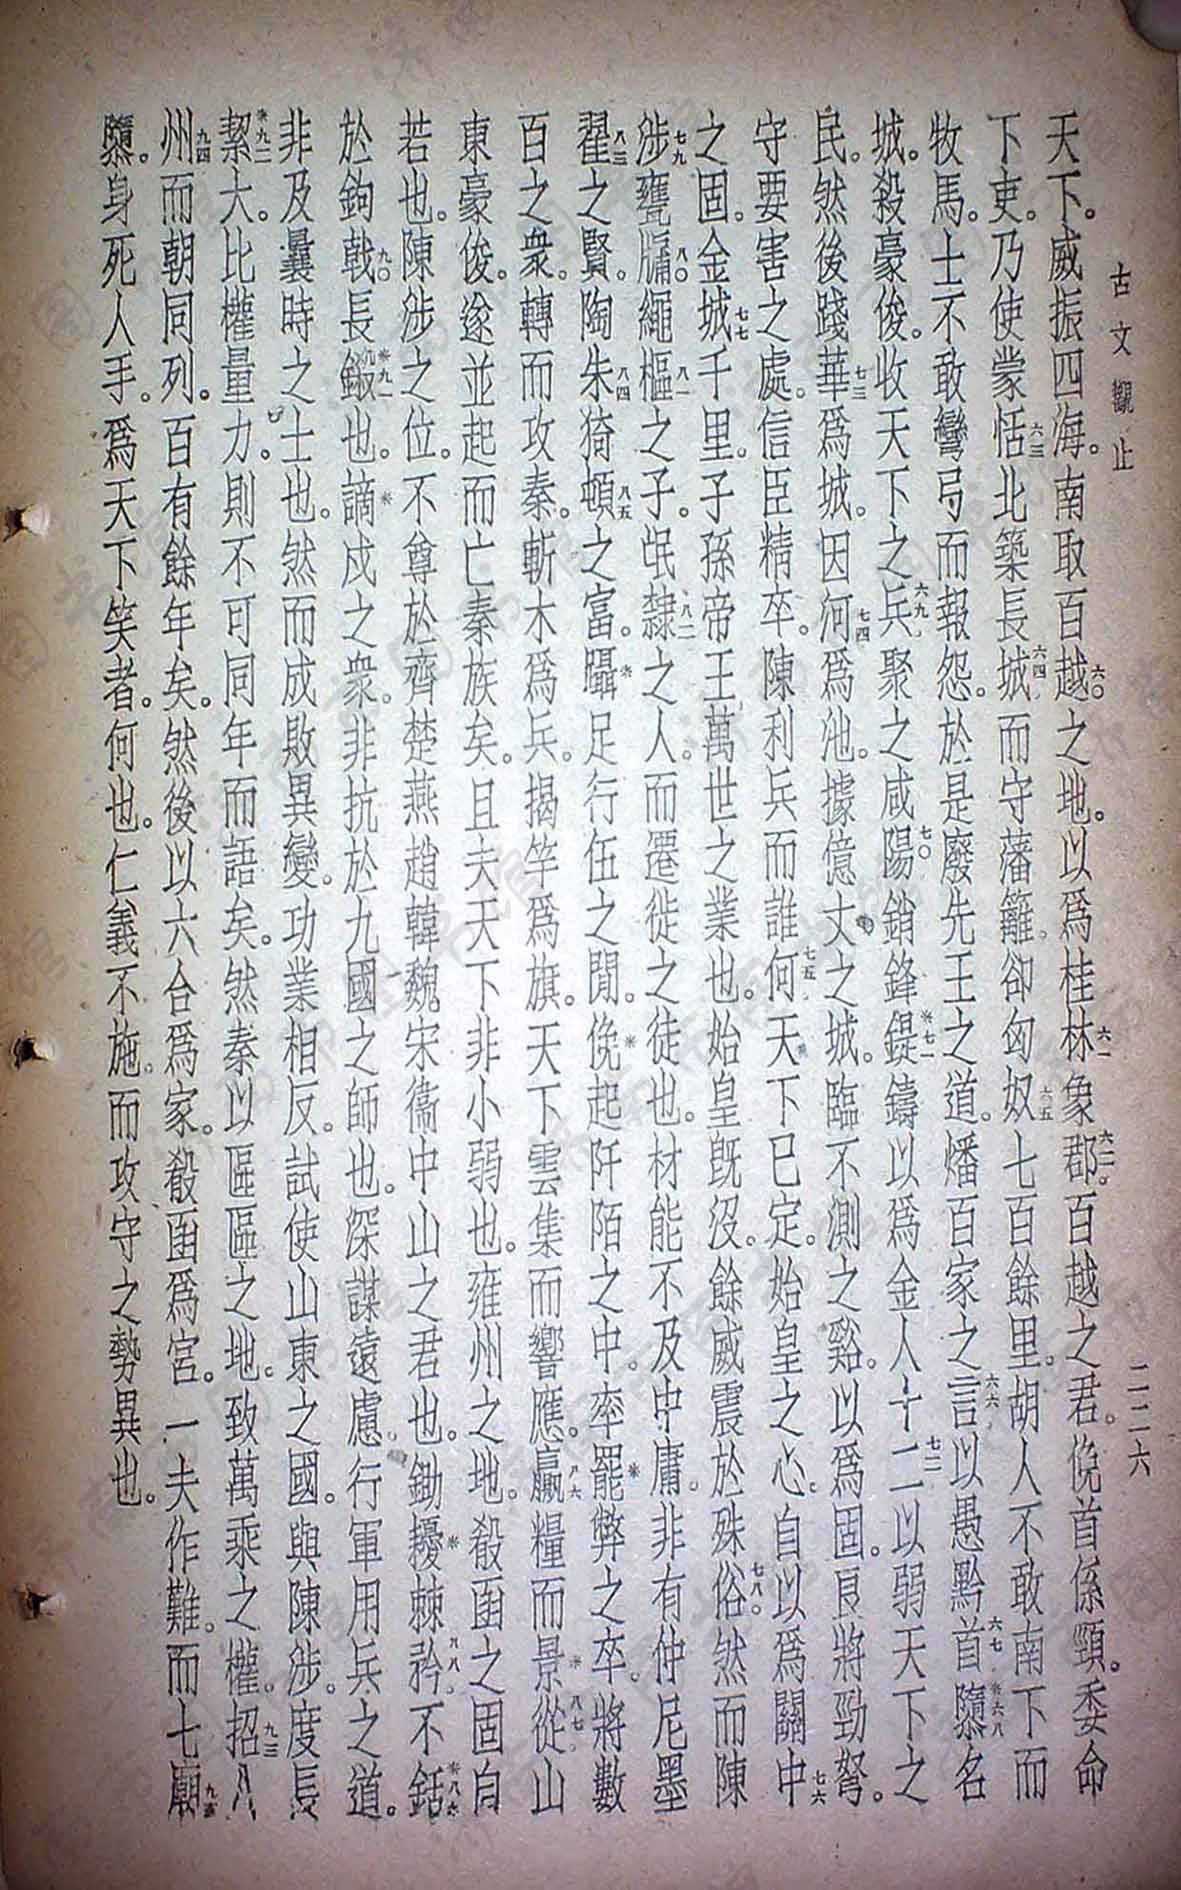 古文觀止
二二六
天下。威振四海。南取百越六〇之地。以爲桂林六一象郡六二。百越之君。俛首係頸。委命
下吏。乃使蒙恬六三北築長城六四而守藩籬。卻匈奴六五七百餘里。胡人不敢南下而
牧馬。士不敢彎弓而報怨。於是廢先王之道。燔百家之言六六以愚黔首六七。隳※六八名
城。殺豪俊。收天下之兵六九。聚之咸陽七〇銷鋒鍉※七一鑄以爲金人十二七二以弱天下之
民。然後踐華七三爲城。因河七四爲池。據億丈之城。臨不測之谿。以爲固。良將勁弩。
守要害之處。信臣精卒。陳利兵而誰何七五。天下已定。始皇之心。自以爲關中七六
之固。金城七七千里。子孫帝王萬世之業也。始皇既沒。餘威震於殊俗七八。然而陳
涉七九甕牖八〇繩樞八一之子。氓隸八二之人。而遷徙之徒也。材能不及中庸。非有仲尼墨
翟八三之賢。陶朱八四猗頓八五之富。躡※足行伍之閒。俛※起阡陌之中。率罷※弊之卒。將數
百之衆。轉而攻秦。斬木爲兵。揭竿爲旗。天下雲集而響應。贏八六糧而景※從八七。山
東豪俊。遂並起而亡秦族矣。且夫天下非小弱也。雍州之地。殽函之固自
若也。陳涉之位。不尊於齊楚燕趙韓魏宋衞中山之君也。鋤擾※棘矜八八。不銛※八九
於鉤戟九〇長鎩※九一也。謫※戍之衆。非抗於九國之師也。深謀遠慮。行軍用兵之道。
非及曩時之士也。然而成敗異變。功業相反。試使山東之國。與陳涉。度長
絜※九二大。比權量力。則不可同年而語矣。然秦以區區之地。致萬乘之權。招九三八
州九四而朝同列。百有餘年矣。然後以六合爲家。殽函爲宮。一夫作難。而七廟九五
隳。身死人手。爲天下笑者。何也。仁義不施。而攻守之勢異也。